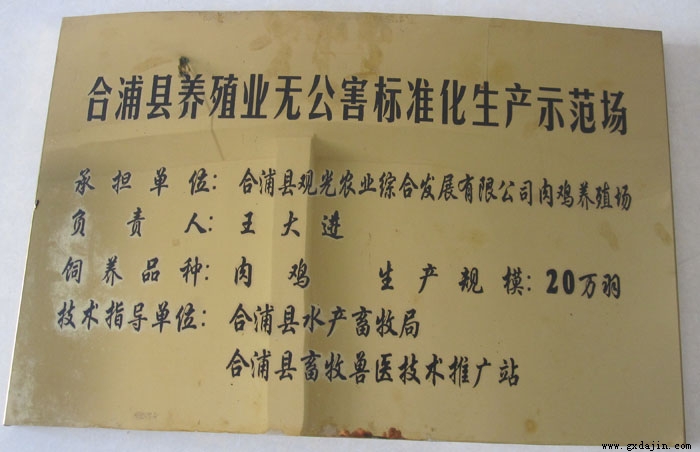 合浦县养殖业无公害标准化生产示范场
承担单位：合浦县观光农业综合发展有限公司肉鸡养殖场
负责人：王大进
饲养品种：肉鸡 生产规模：20万羽
技术指导单位：合浦县水产畜牧局
合浦县畜牧兽医技术推广站
www.gxdajin.com